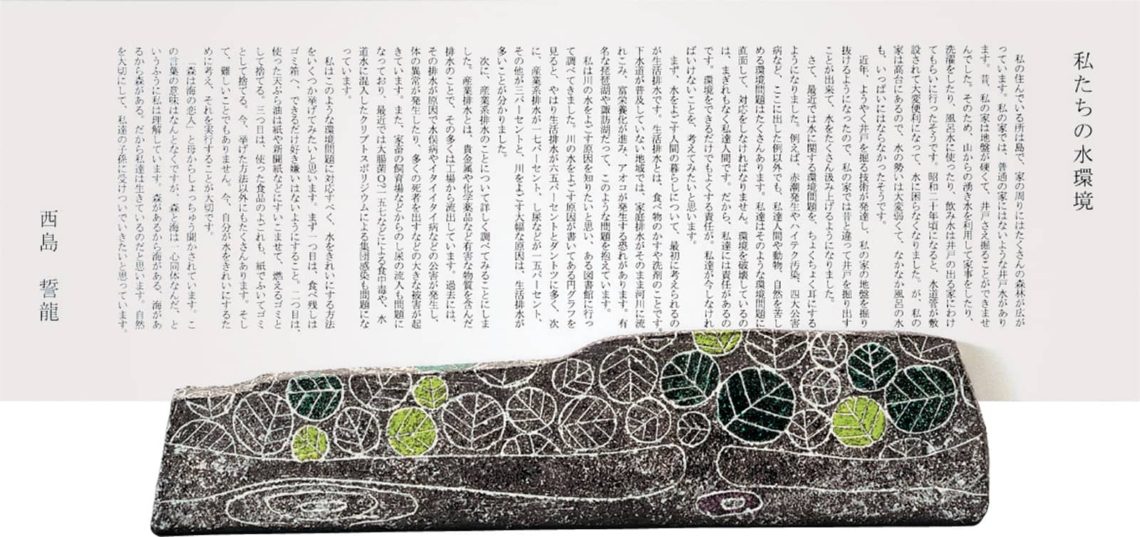 私たちの水環境
私の住んでいる所は島で、家の周りにはたくさんの森林が広が
っています。私の家では、普通の家にはないような井戸水があり
ます。昔、私の家は地盤が硬くて、井戸さえ掘ることができませ
んでした。そのため、山からの湧き水を利用して家事をしたり、
洗濯をしたり、風呂水に使ったり、飲み水は井戸の出る家にわけ
てもらいに行ったそうです。昭和二十年頃になると、水道管が敷
設されて大変便利になって、水に困らなくなりました。が、私の
家は高台にあるので、水の勢いは大変弱くて、なかなか風呂の水
も、いっぱいにはならなかったそうです。
近年、ようやく井戸を掘る技術が発達し、私の家の地盤を掘り
抜けるようになったので、私の家では昔と違って井戸を掘り出す
ことが出来て、水をたくさん汲み上げるようになりました。
さて、最近では水に関する環境問題を、ちょくちょく耳にする
ようになりました。例えば、赤潮発生やハイテク汚染、四大公害
病など、ここに出した例以外でも、私達人間や動物、自然を苦し
める環境問題はたくさんあります。私達はそのような環境問題に
直面して、対応をしなければなりません。環境を破壊しているの
は、まぎれもなく私達人間です。だから、私達には責任があるの
です。環境をできるだけでもよくする責任が。私達が今しなけれ
ばいけないことを、考えてみたいと思います。
まず、水をよごす人間の暮らしについて、最初に考えられるの
が生活排水です。生活排水とは、食べ物のかすや洗剤のことです。
下水道が普及していない地域では、家庭排水がそのまま河川に流
れこみ、富栄養化が進み、アオコが発生する恐れがあります。有
名な琵琶湖や諏訪湖だって、このような問題を抱えています。
私は川の水をよごす原因を知りたいと思い、ある図書館に行っ
て調べてきました。川の水をよごす原因が書いてある円グラフを
見ると、やはり生活排水が六五パーセントとダントツに多く、次
に、産業系排水が一七パーセント、し尿などが一五パーセント、
その他が三パーセントと、川をよごす大幅な原因は、生活排水が
多いことが分かりました。
次に、産業系排水のことについて詳しく調べてみることにしま
した。産業排水とは、貴金属や化学薬品など有害な物質を含んだ
排水のことで、その多くは工場から流出しています。過去には、
その排水が原因で水俣病やイタイイタイ病などの公害が発生し、
体の異常が発生したり、多くの死者を出すなどの大きな被害が起
きています。また、家畜の飼育場などからのし尿の流入も問題に
なっており、最近では大腸菌O?一五七などによる食中毒や、水
道水に混入したクリプトスポリジウムによる集団感染も問題にな
っています。
私はこのような環境問題に対応すべく、水をきれいにする方法
をいくつか挙げてみたいと思います。まず一つ目は、食べ残しは
ゴミ箱へ、できるだけ好き嫌いはないようにすること、二つ目は、
使った天ぷら油は紙や新聞紙などにすいこませて、燃えるゴミと
して捨てる。三つ目は、使った食品のよごれも、紙でふいてゴミ
として捨てる。今、挙げた方法以外にもたくさんあります。そし
て、難しいことでもありません。今、自分が水をきれいにするた
めに考え、それを実行することが大切です。
「森は海の恋人」と母からしょっちゅう聞かされています。こ
の言葉の意味はなんとなくですが、森と海は一心同体なんだ、と
いうふうに私は理解しています。森があるから海がある、海があ
るから森がある。だから私達は生きているのだと思います。自然
を大切にして、私達の子孫に受けついでいきたいと思っています。
西島 誓龍